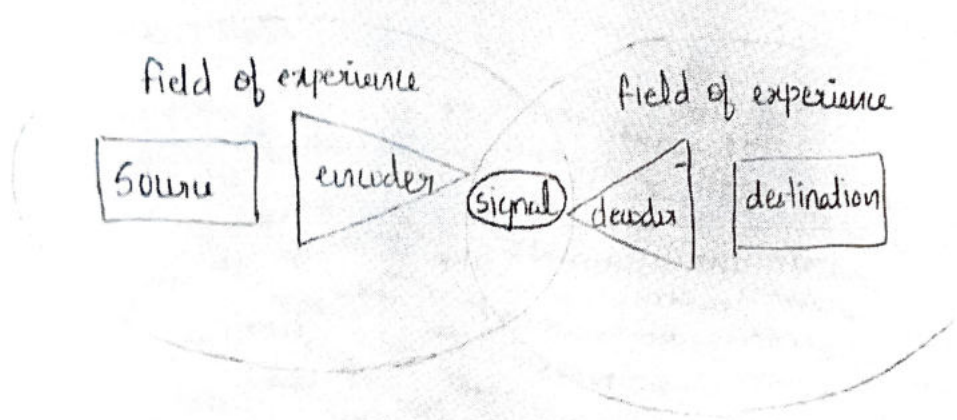 field of experience
field of experience
Source
encoder
signal
decoder
destination